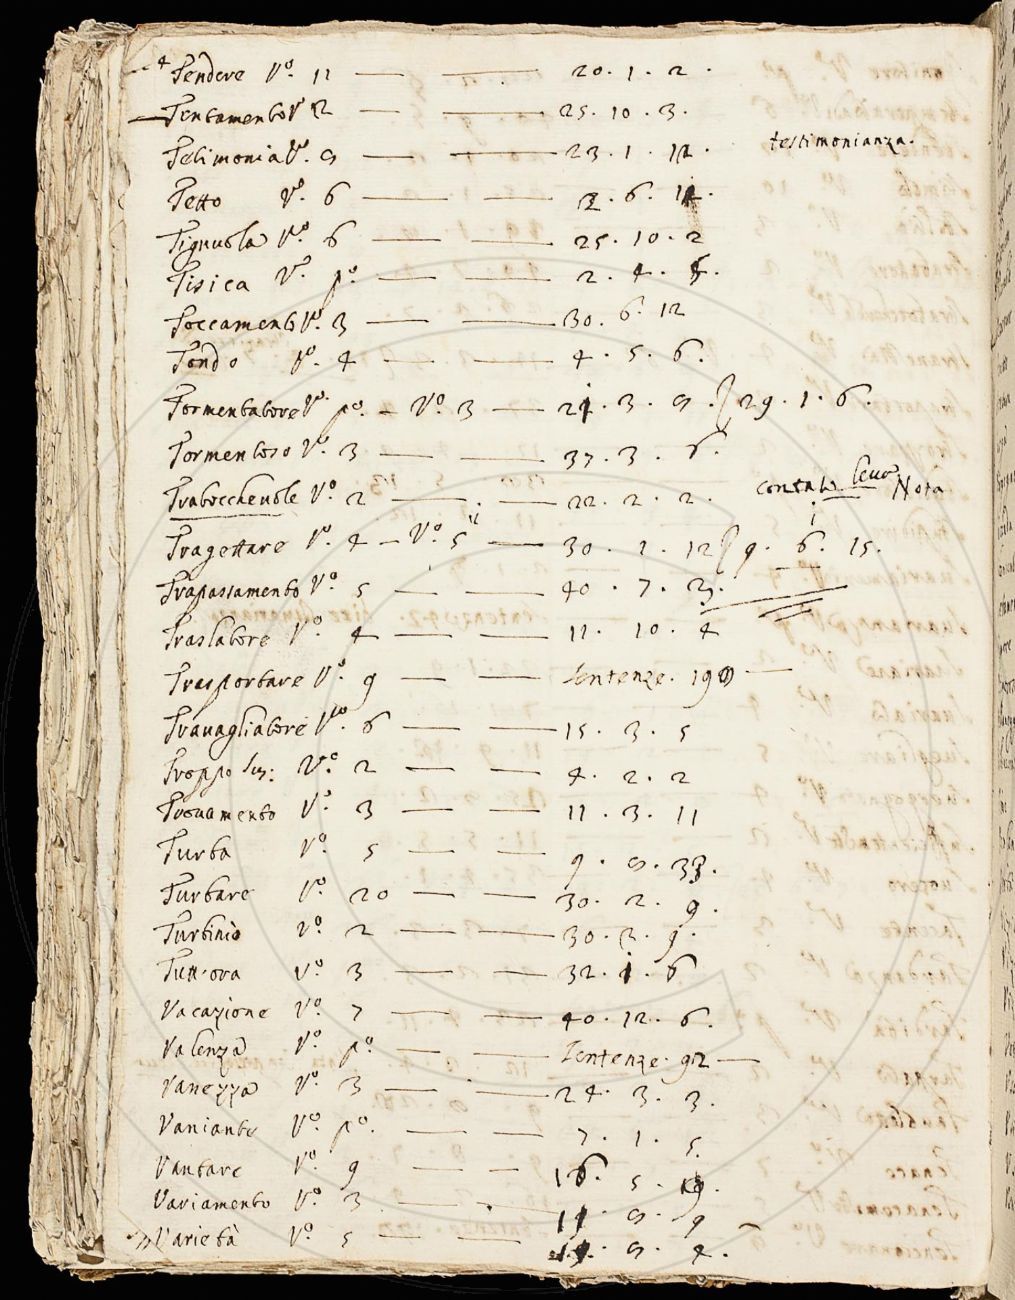 Tendere Vº. 11 — — 20. 1. 2.
Tentamento Vº 12 — — 25. 10. 3.
Testimonia Vº. 8 — — 23. 1. 12. testimonianza.
Tetto Vº. 6 — — 2. 6. 11.
Tignuola Vº. 6 — — 25. 10. 2
Tisica Vº. pº. — — 2. 4. 5.
Toccamento Vº. 3 — — 30. 6. 12
Tondo Vº. 4 — — 4. 5. 6.
Tormentatore Vº. pº. — Vº. 3 — 21. 3. 8. 29. 1. 6.
Tormentoso Vº. 3 — — 37. 3. 6.
Trabocchevole Vº. 2 — — 22. 2. 2. Nota
Tragettare Vº. 4 — Vº. 5 — 30. 1. 12 9. 6. 15.
Trapassamento Vº 5 — — 40. 7. 3.
Traslatore Vº. 4 — — 11. 10. 4
Trasportare Vº. 9 — — Sentenze. 199 —
Travagliatore Vº 6 — — 15. 3. 5
Troppo sus: Vº. 2 — — 4. 2. 2
Trovamento Vº. 3 — — 11. 3. 11
Turba Vº. 5 — — 9. 8. 33.
Turbare Vº. 20 — — 30. 2. 9.
Turbinio Vº. 2 — — 30. 3. 9.
Tutt'ora Vº. 3 — — 32. 1. 6
Vacazione Vº. 7 — — 40. 12. 6.
Valenza Vº. pº. — — Sentenze. 92 —
Vanezza Vº. 3 — — 24. 3. 3.
Vanianto Vº. pº. — — 7. 1. 5.
Vantare Vº. 9 — — 16. 5. 19.
Variamento Vº. 3 — — 11. 8. 9
Varietà Vº. 5 — — 19. 8. 4.